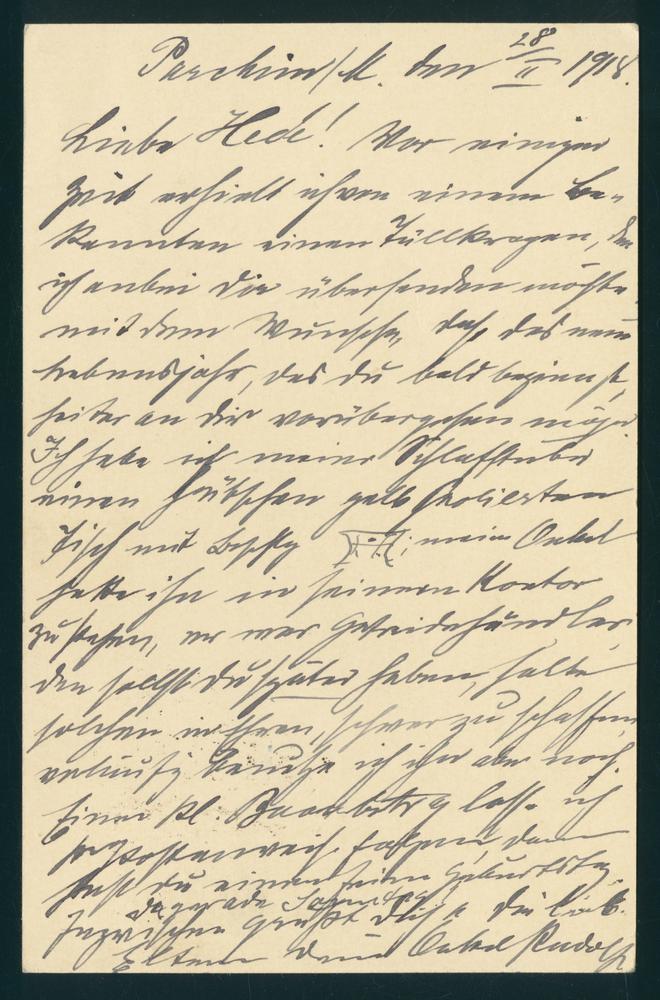 Parchim/M. den 28/II 1918.
Liebe Hede! Vor einiger
Zeit erhielt ich von einem Be-
kannten einen Tüllkragen, den
ich anbei dir übersenden möchte,
mit dem Wunsche, daß das neue
Lebensjahr, das du bald beginnst,
heiter an dir vorübergehen möge.
Ich habe in meiner Schlafstube
einen hübschen gelb polierten
Tisch mit ; mein Onkel
hatte ihn in seinem Kontor
zu stehen, er war Getreidehändler,
den sollst du später haben, halte
solchen in Ehren, schwer zu schaffen,
vorläufig benutze ich ihn aber noch.
Einen kl. Baarbetrag lasse ich
per Postanweis. folgen, dann
hast du einen Geburtstag.
da gerade
Inzwischen grüßt dich & die lieb.
Eltern dein Onkel Rudolf